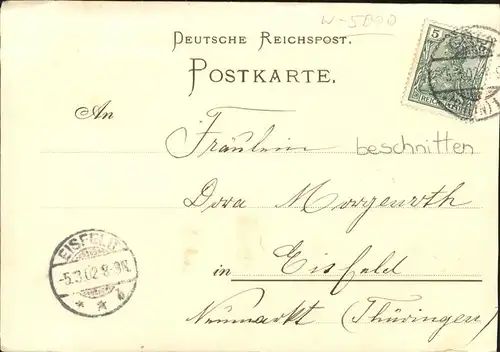 W-5090
DEUTSCHE REICHSPOST.
POSTKARTE.
5
REICHSPOST
An
Fräulein
beschnitten
Dora Morgenroth
in Eisfeld
Neumarkt (Thüringen)
EISFELD
-5.3.02 8-9N.
* * b